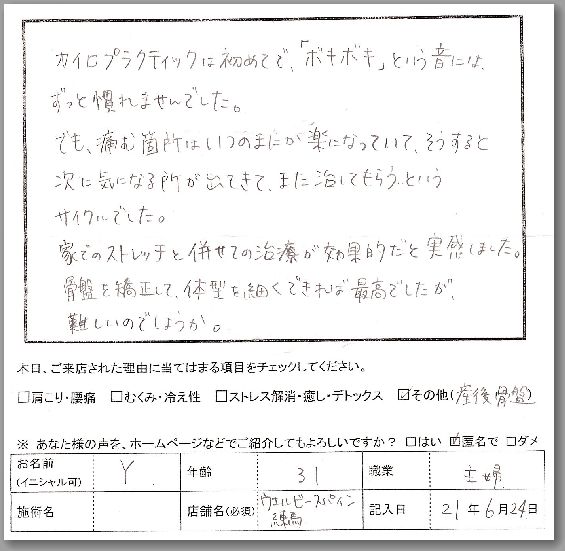 カイロプラクティックは初めてで、「ボキボキ」という音には、
ずっと慣れませんでした。
でも、痛む箇所はいつのまにか楽になっていて、そうすると
次に気になる所が出てきて、また治してもらう、という
サイクルでした。
家でのストレッチと併せての治療が効果的だと実感しました。
骨盤を矯正して、体型を細くできれば最高でしたが、
難しいのでしょうか。
本日、ご来店された理由に当てはまる項目をチェックしてください。
□肩こり・腰痛 □むくみ・冷え性 □ストレス解消・癒し・デトックス ☑その他(産後骨盤)
※ あなた様の声を、ホームページなどでご紹介してもよろしいですか? □はい ☑匿名で □ダメ
お名前 (イニシャル可) Y. 年齢 31 職業 主婦
施術名 店舗名(必須) ウェルビースパイン 練馬 記入日 21年6月24日